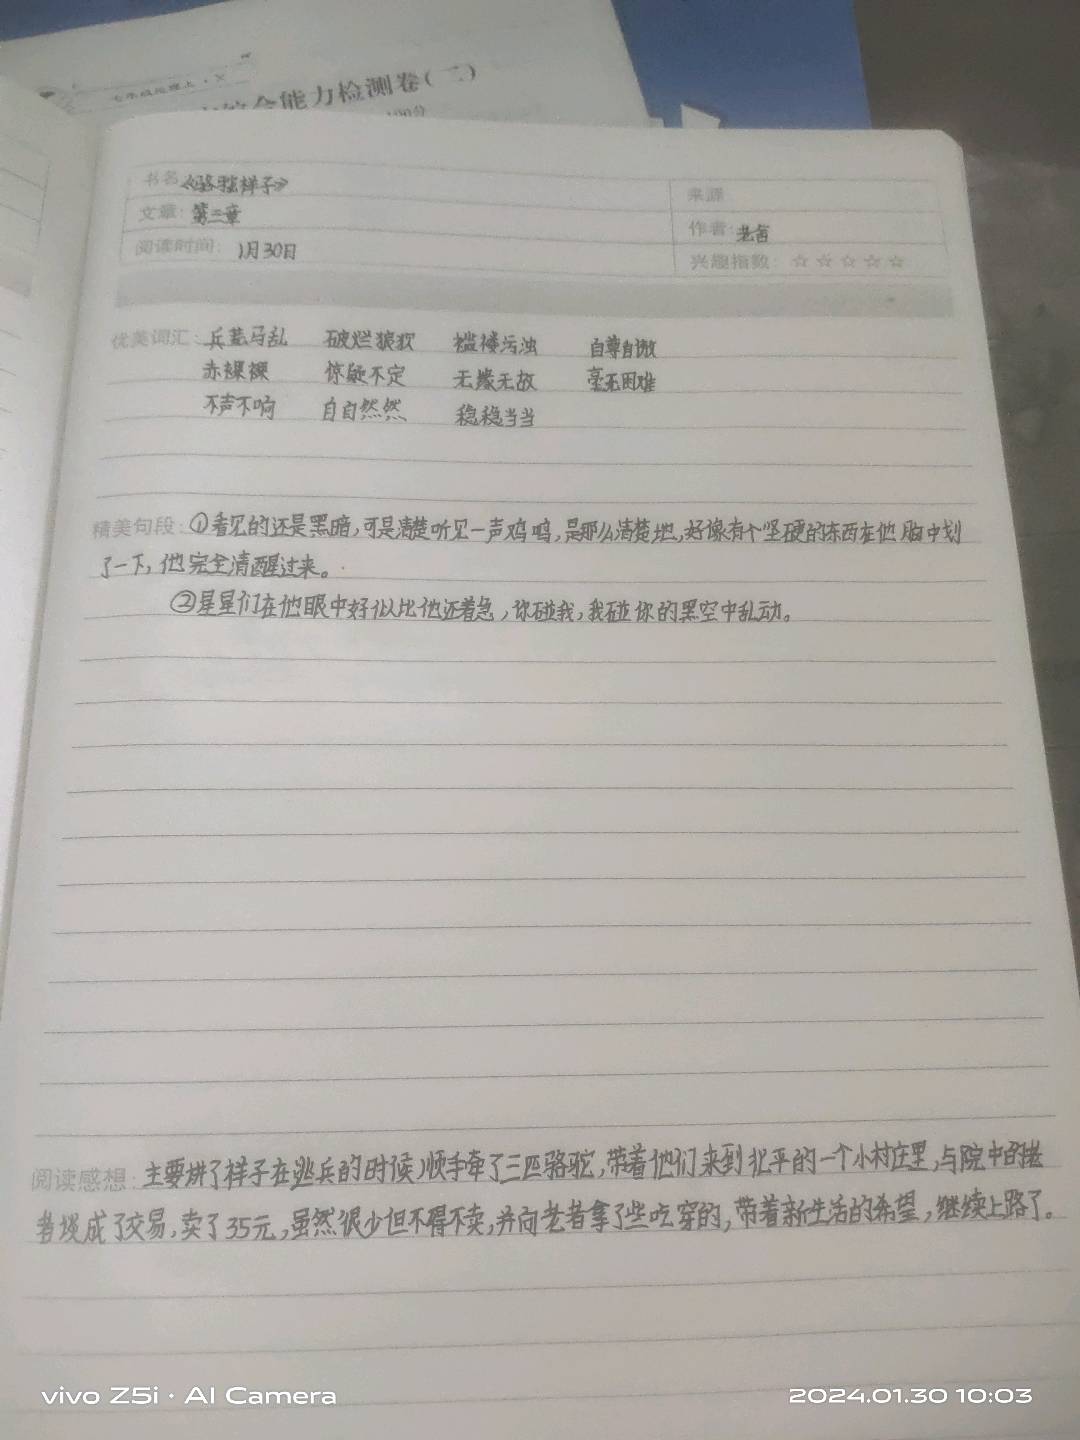 七年级地理上·X
综合能力检测卷(二)
100分
书名《骆驼祥子》
来源
文章:第三章
作者:老舍
阅读时间:1月30日
兴趣指数:☆☆☆☆☆
优美词汇:兵荒马乱 破烂狼狈 褴褛污浊 自尊自傲
赤裸裸 惊疑不定 无缘无故 毫无困难
不声不响 自自然然 稳稳当当
精美句段:①看见的还是黑暗,可是清楚听见一声鸡鸣,是那么清楚地,好像有个坚硬的东西在他脑中划
了一下,他完全清醒过来。
②星星们在他眼中好似比他还着急,你碰我,我碰你的黑空中乱动。
阅读感想:主要讲了祥子在逃兵的时候,顺手牵了三匹骆驼,带着他们来到北平的一个小村庄里,与院中的老
者谈成了交易,卖了35元,虽然很少但不得不卖,并向老者拿了些吃穿的,带着新生活的希望,继续上路了。
vivo Z5i · AI Camera
2024.01.30 10:03